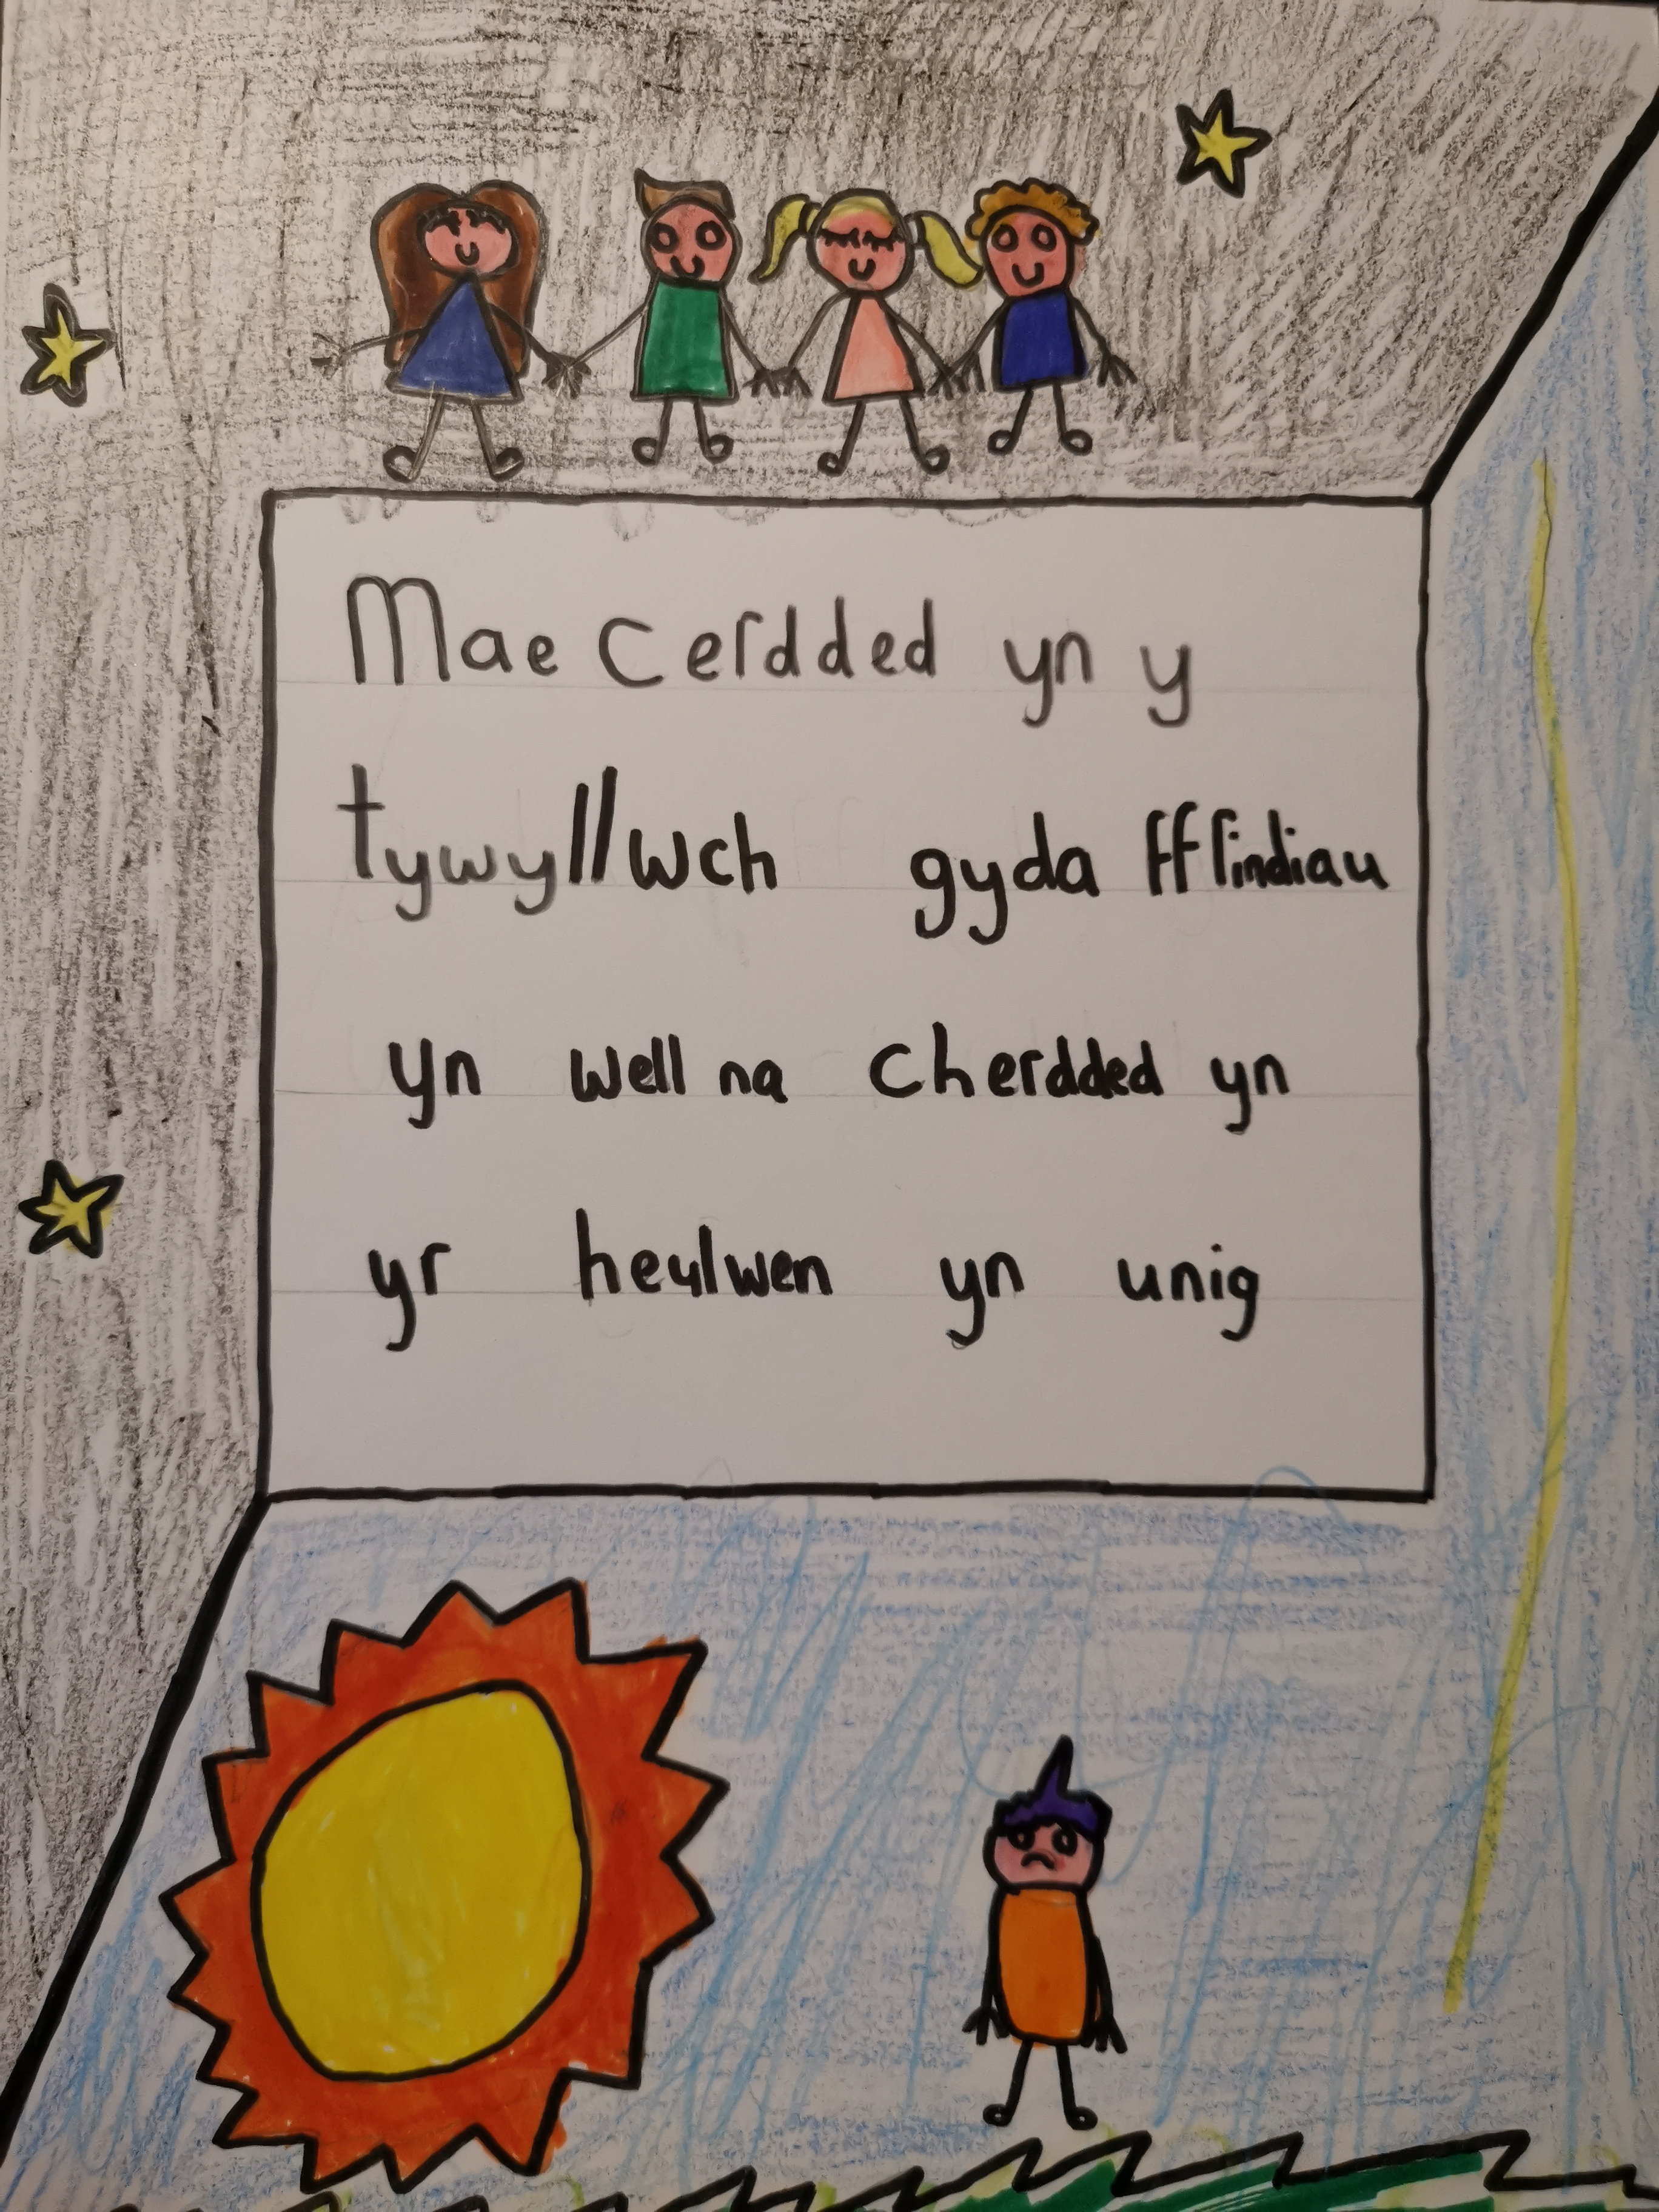 Mae cerdded yn y
tywyllwch gyda ffrindiau
yn well na cherdded yn
yr heulwen yn unig